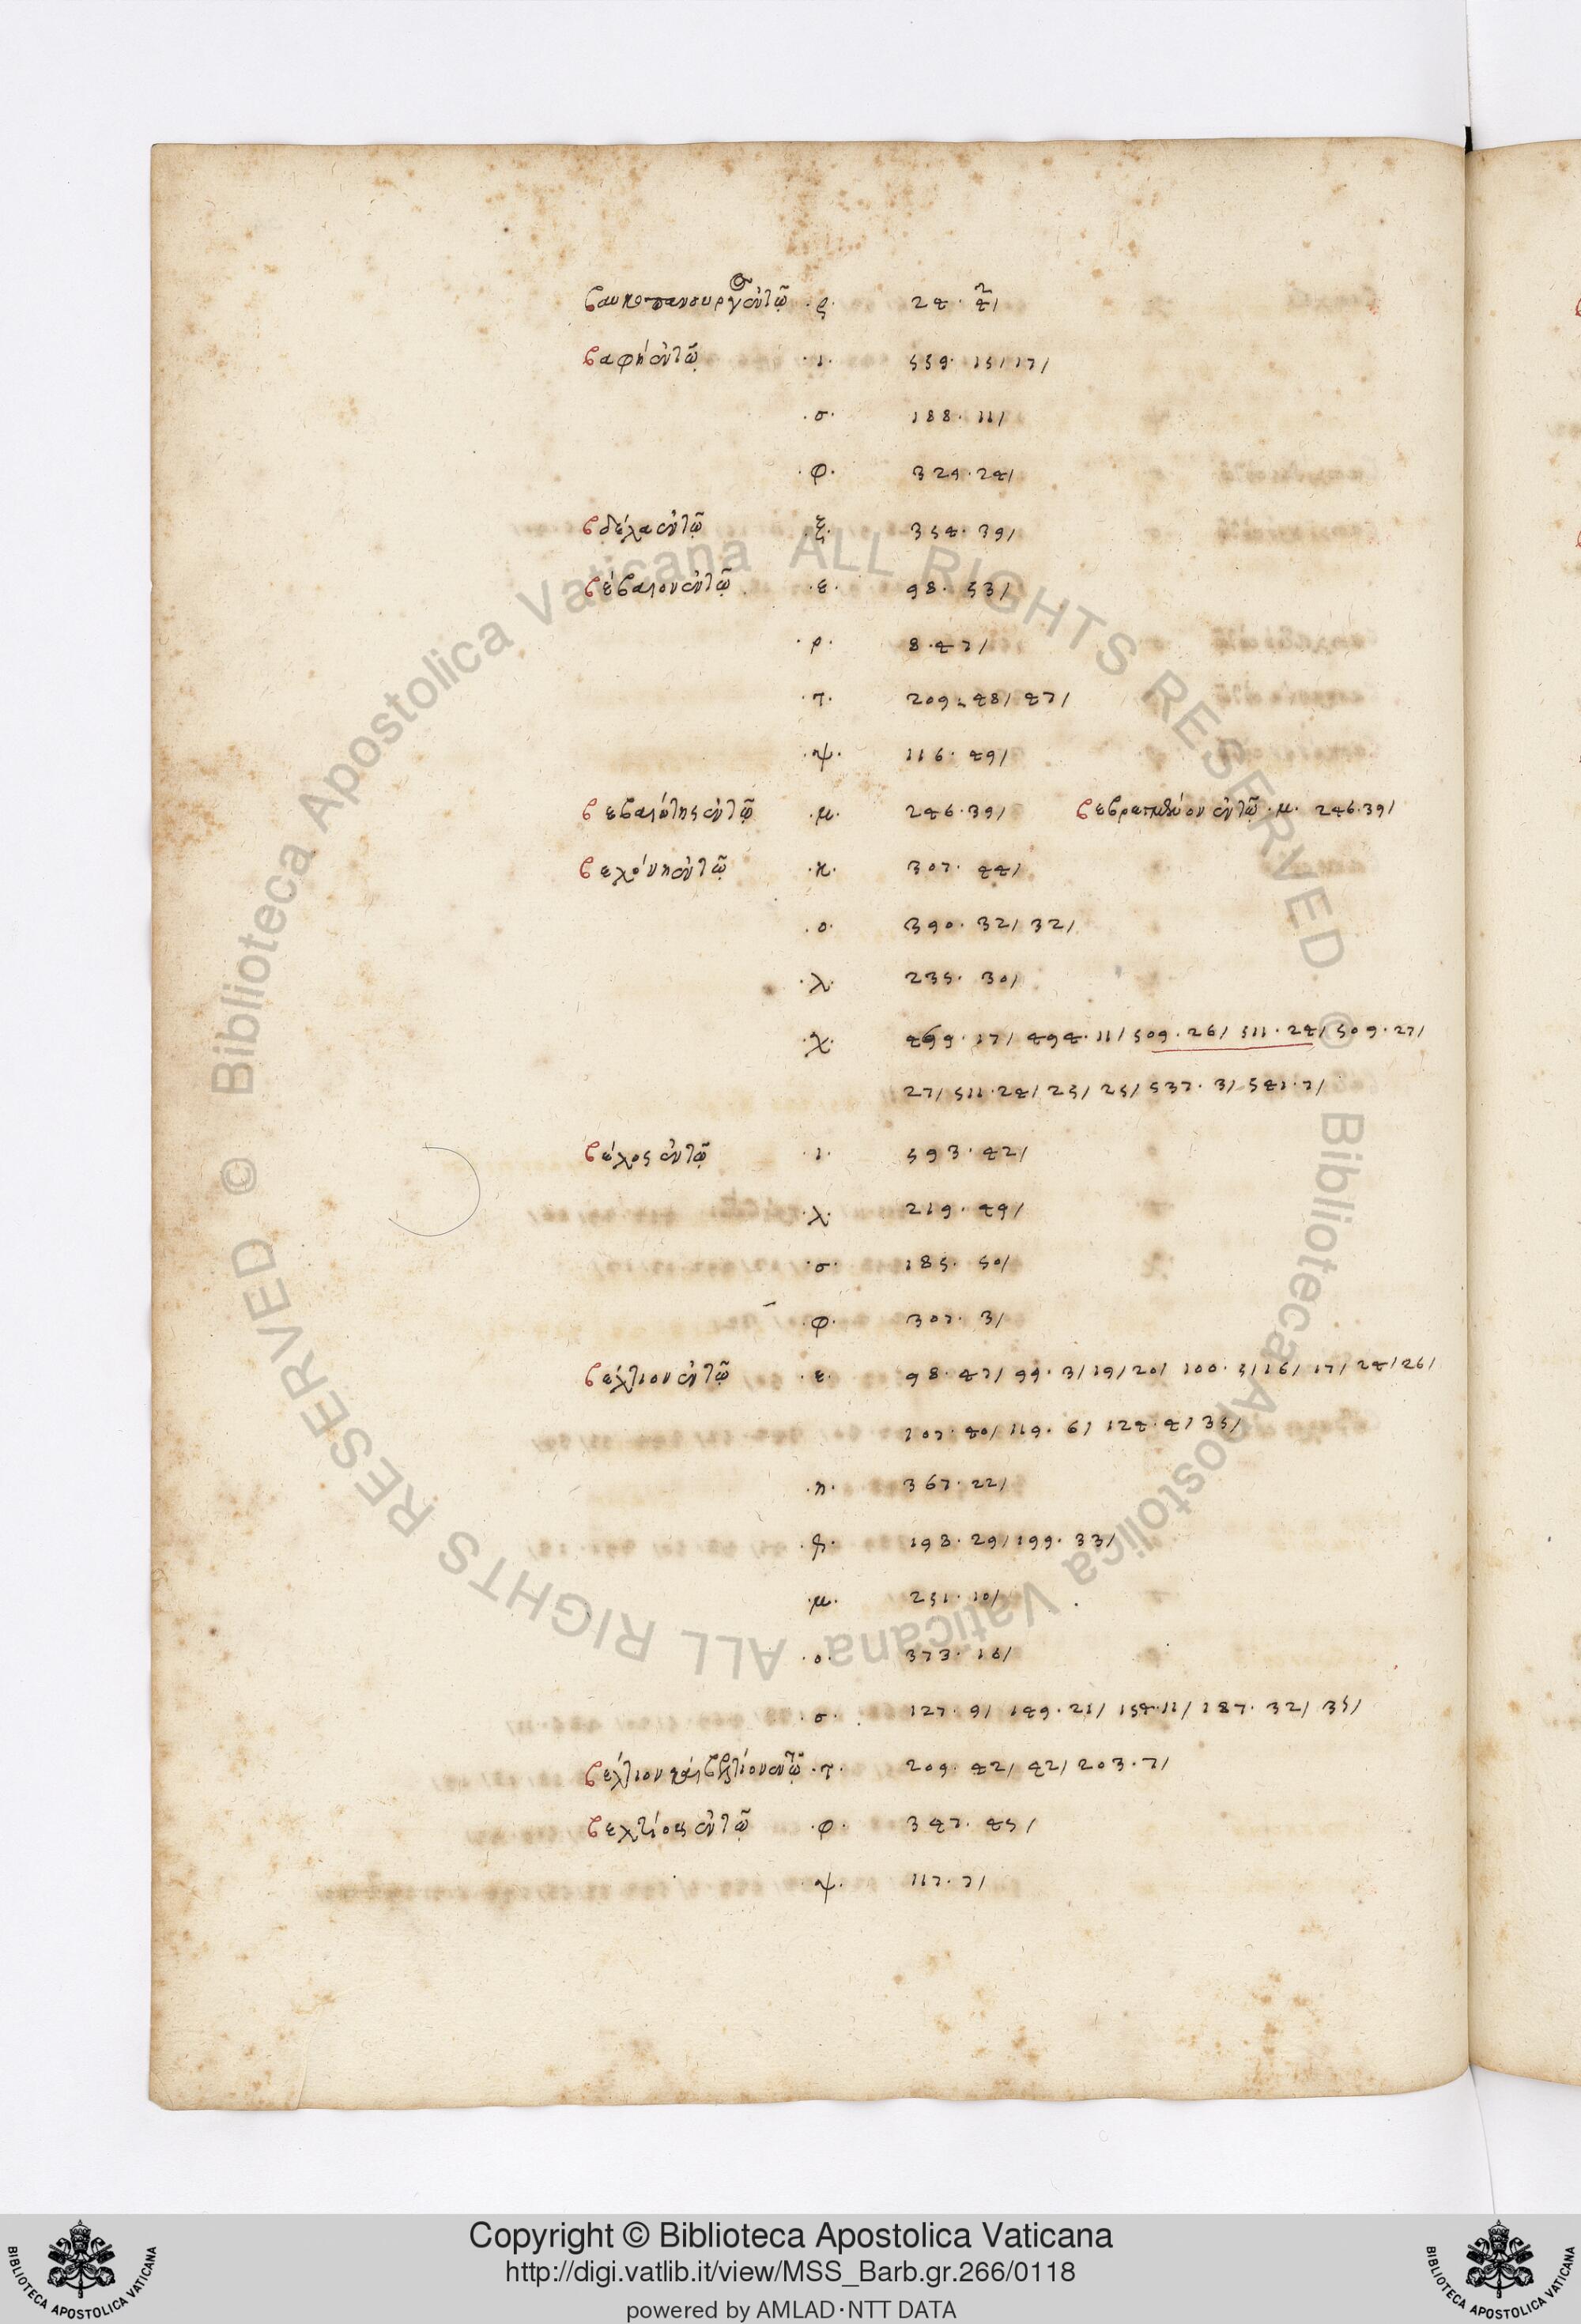 βαυκοπανουργ ἐν τῷ · ς · 24 · 4/
βαφὴ ἐν τῷ · ι · 559 · 15/ 17/
· σ · 188 · 11/
· φ · 329 · 24/
βδέλλα ἐν τῷ · ξ · 354 · 39/
βέβαιον ἐν τῷ · ε · 98 · 53/
· ρ · 8 · 47/
· τ · 209 · 48/ 47/
· ψ · 116 · 49/
βεβαιότης ἐν τῷ · μ · 246 · 39/ ἐν τῷ · μ · 246 · 39/
βελόνη ἐν τῷ · κ · 307 · 44/
· ο · 390 · 32/ 32/
· λ · 235 · 30/
· χ · 499 · 17/ 494 · 11/ 509 · 26/ 511 · 24/ 509 · 27/
27/ 511 · 24/ 25/ 25/ 537 · 3/ 541 · 7/
βέλος ἐν τῷ · ι · 593 · 42/
· λ · 219 · 49/
· σ · 185 · 50/
· φ · 307 · 3/
βέλτιον ἐν τῷ · ε · 98 · 47/ 99 · 3/ 19/ 20/ 100 · 5/ 16/ 17/ 24/ 26/
107 · 40/ 119 · 6/ 124 · 4/ 35/
· η · 367 · 22/
193 · 29/ 199 · 33/
· μ · 251 · 10/
· ο · 373 · 16/
· σ · 127 · 9/ 149 · 21/ 154 · 11/ 187 · 32/ 35/
βέλτιον ἐν τῷ · τ · 209 · 42/ 42/ 203 · 7/
ἐν τῷ · φ · 347 · 45/
· ψ · 117 · 7/
© Biblioteca Apostolica Vaticana ALL RIGHTS RESERVED © Biblioteca Apostolica Vaticana ALL RIGHTS RESERVED
Copyright © Biblioteca Apostolica Vaticana
http://digi.vatlib.it/view/MSS_Barb.gr.266/0118
powered by AMLAD · NTT DATA
BIBLIOTECA APOSTOLICA VATICANA
BIBLIOTECA APOSTOLICA VATICANA